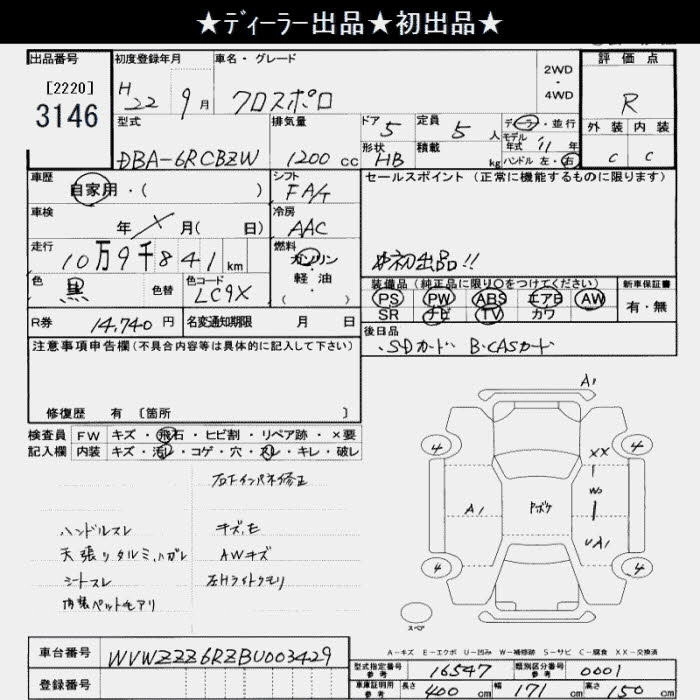 ★ディーラー出品★初出品★
出品番号 初度登録年月 車名・グレード 評価点
[2220] H 22 9月 クロスポロ 2WD・4WD R
3146
型式 排気量 ドア 5 定員 5人 ディーラー・並行 外装 内装
DBA-6RCBZW 1200cc 形状 HB 積載 kg モデル年式 11年 ハンドル 左・右 C C
車歴 自家用・( ) シフト FA/T セールスポイント (正常に機能するものに限ります)
車検 年 月( 日) 冷房 AAC
走行 10万9千841km 燃料 ガソリン・軽油・( ) #初出品!!
色 黒 色替 色コード LC9X 装備品(純正品に限り○をつけてください) 新車保証書
PS PW ABS エアB AW 有・無
SR ナビ TV カワ
R券 14,740円 名変通知期限 月 日 後日品
・SDカード B-CASカード
注意事項申告欄(不具合内容等は具体的に記入して下さい)
修復歴 有[箇所 ]
検査員 FW キズ・飛石・ヒビ割・リペア跡・×要
記入欄 内装 キズ・汚レ・コゲ・穴・スレ・キレ・破レ
右Fインパネ修正
ハンドルスレ キズ,E
天張りタルミ,ハガレ AWキズ
シートスレ 左Hライトクモリ
内装ペットモアリ
A1
4 4
XX
A1 Pボケ W
UA1
4 4
スペア
A-キズ E-エクボ U-凹み W-補修跡 S-サビ C-腐食 XX-交換済
車台番号 WVWZZZ6RZBU003429 型式指定番号 参考 16547 類別区分番号 参考 0001
登録番号 車庫証明用 参考 長さ 400cm 幅 171cm 高さ 150cm